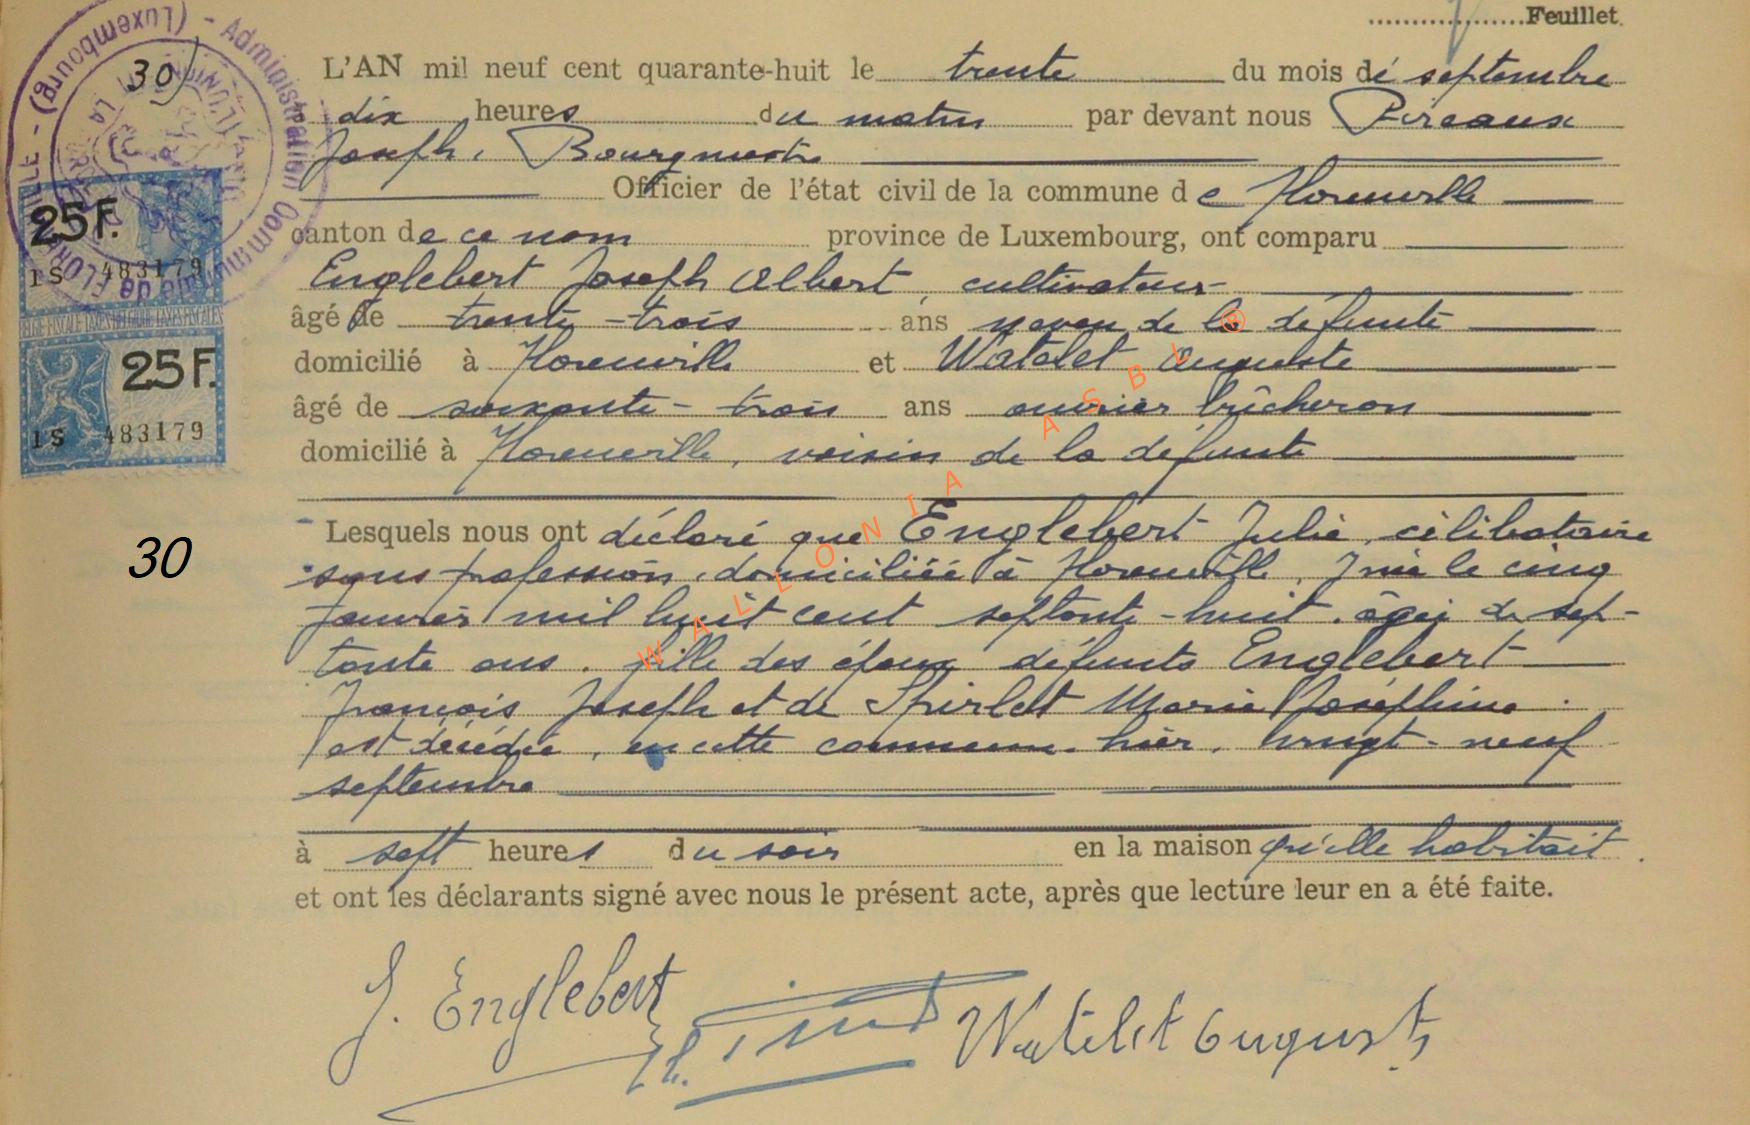 Feuillet.
30
L'AN mil neuf cent quarante-huit le trente du mois de septembre
dix heures du matin par devant nous Pireaux
Joseph, Bourgmestre
Officier de l'état civil de la commune de Florenville
canton de ce nom province de Luxembourg, ont comparu
Englebert Joseph Albert, cultivateur
âgé de trente-trois ans neveu de la défunte
domicilié à Florenville et Watelet Auguste
âgé de soixante-trois ans ouvrier bûcheron
domicilié à Florenville, voisin de la défunte
Lesquels nous ont déclaré que Englebert Julie, célibataire
sans profession, domiciliée à Florenville, née le cinq
janvier mil huit cent septante-huit, âgée de sep-
tante ans, fille des époux défunts Englebert
François Joseph et de Spirlet Marie Joséphine
est décédée, en cette commune, hier, vingt-neuf
septembre
à sept heures du soir en la maison qu'elle habitait.
et ont les déclarants signé avec nous le présent acte, après que lecture leur en a été faite.
J. Englebert
Watelet Auguste
Administration Communale de FLORENVILLE - (Luxembourg) -
25 F.
1S 483179
BELGIE FISCALE TAXES BELGIQUE TAXES FISCALES
25 F.
1S 483179
30
WALLONIA ASBL ®